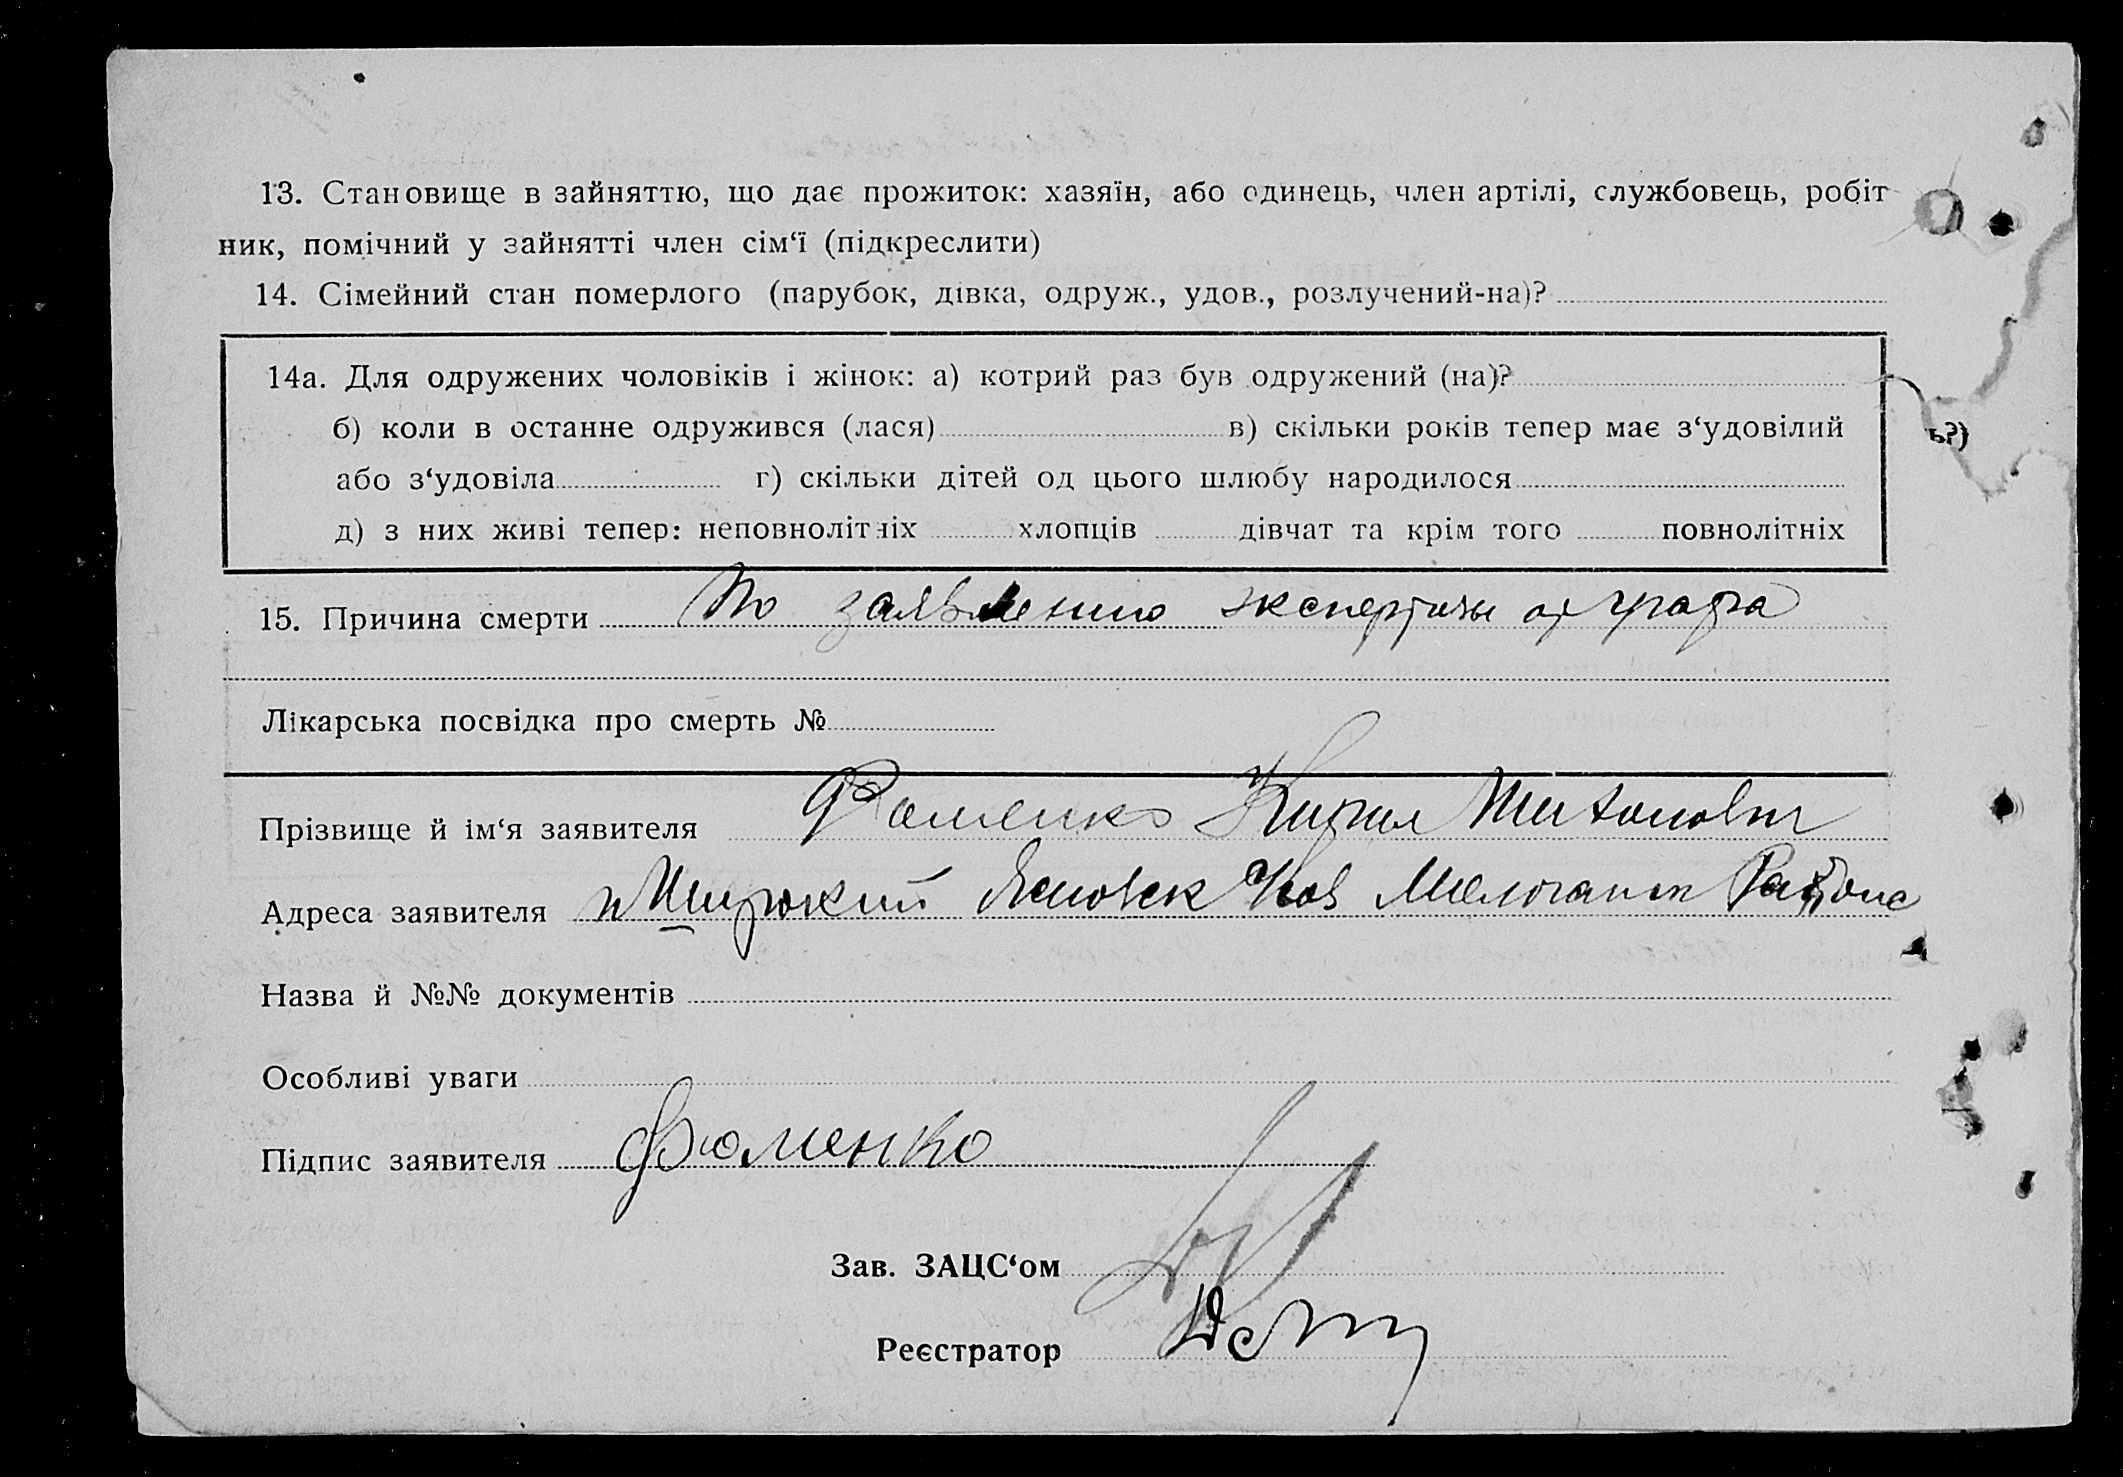 13. Становище в зайняттю, що дає прожиток: хазяїн, або одинець, член артілі, службовець, робіт
ник, помічний у зайнятті член сім‘ї (підкреслити)
14. Сімейний стан померлого (парубок, дівка, одруж., удов., розлучений-на)?
14а. Для одружених чоловіків і жінок: а) котрий раз був одружений (на)?
б) коли в останне одружився (лася) в) скільки років тепер має з‘удовілий
або з‘удовіла г) скільки дітей од цього шлюбу народилося
д) з них живі тепер: неповнолітніх хлопців дівчат та крім того повнолітніх
ь?)
15. Причина смерти По заявлению экспертизы от
Лікарська посвідка про смерть №
Прізвище й ім‘я заявителя Фоменко Кирил Тихонович
Адреса заявителя Широкий Нов Района
Назва й №№ документів
Особливі уваги
Підпис заявителя Фоменко
Зав. ЗАЦС‘ом
Реєстратор